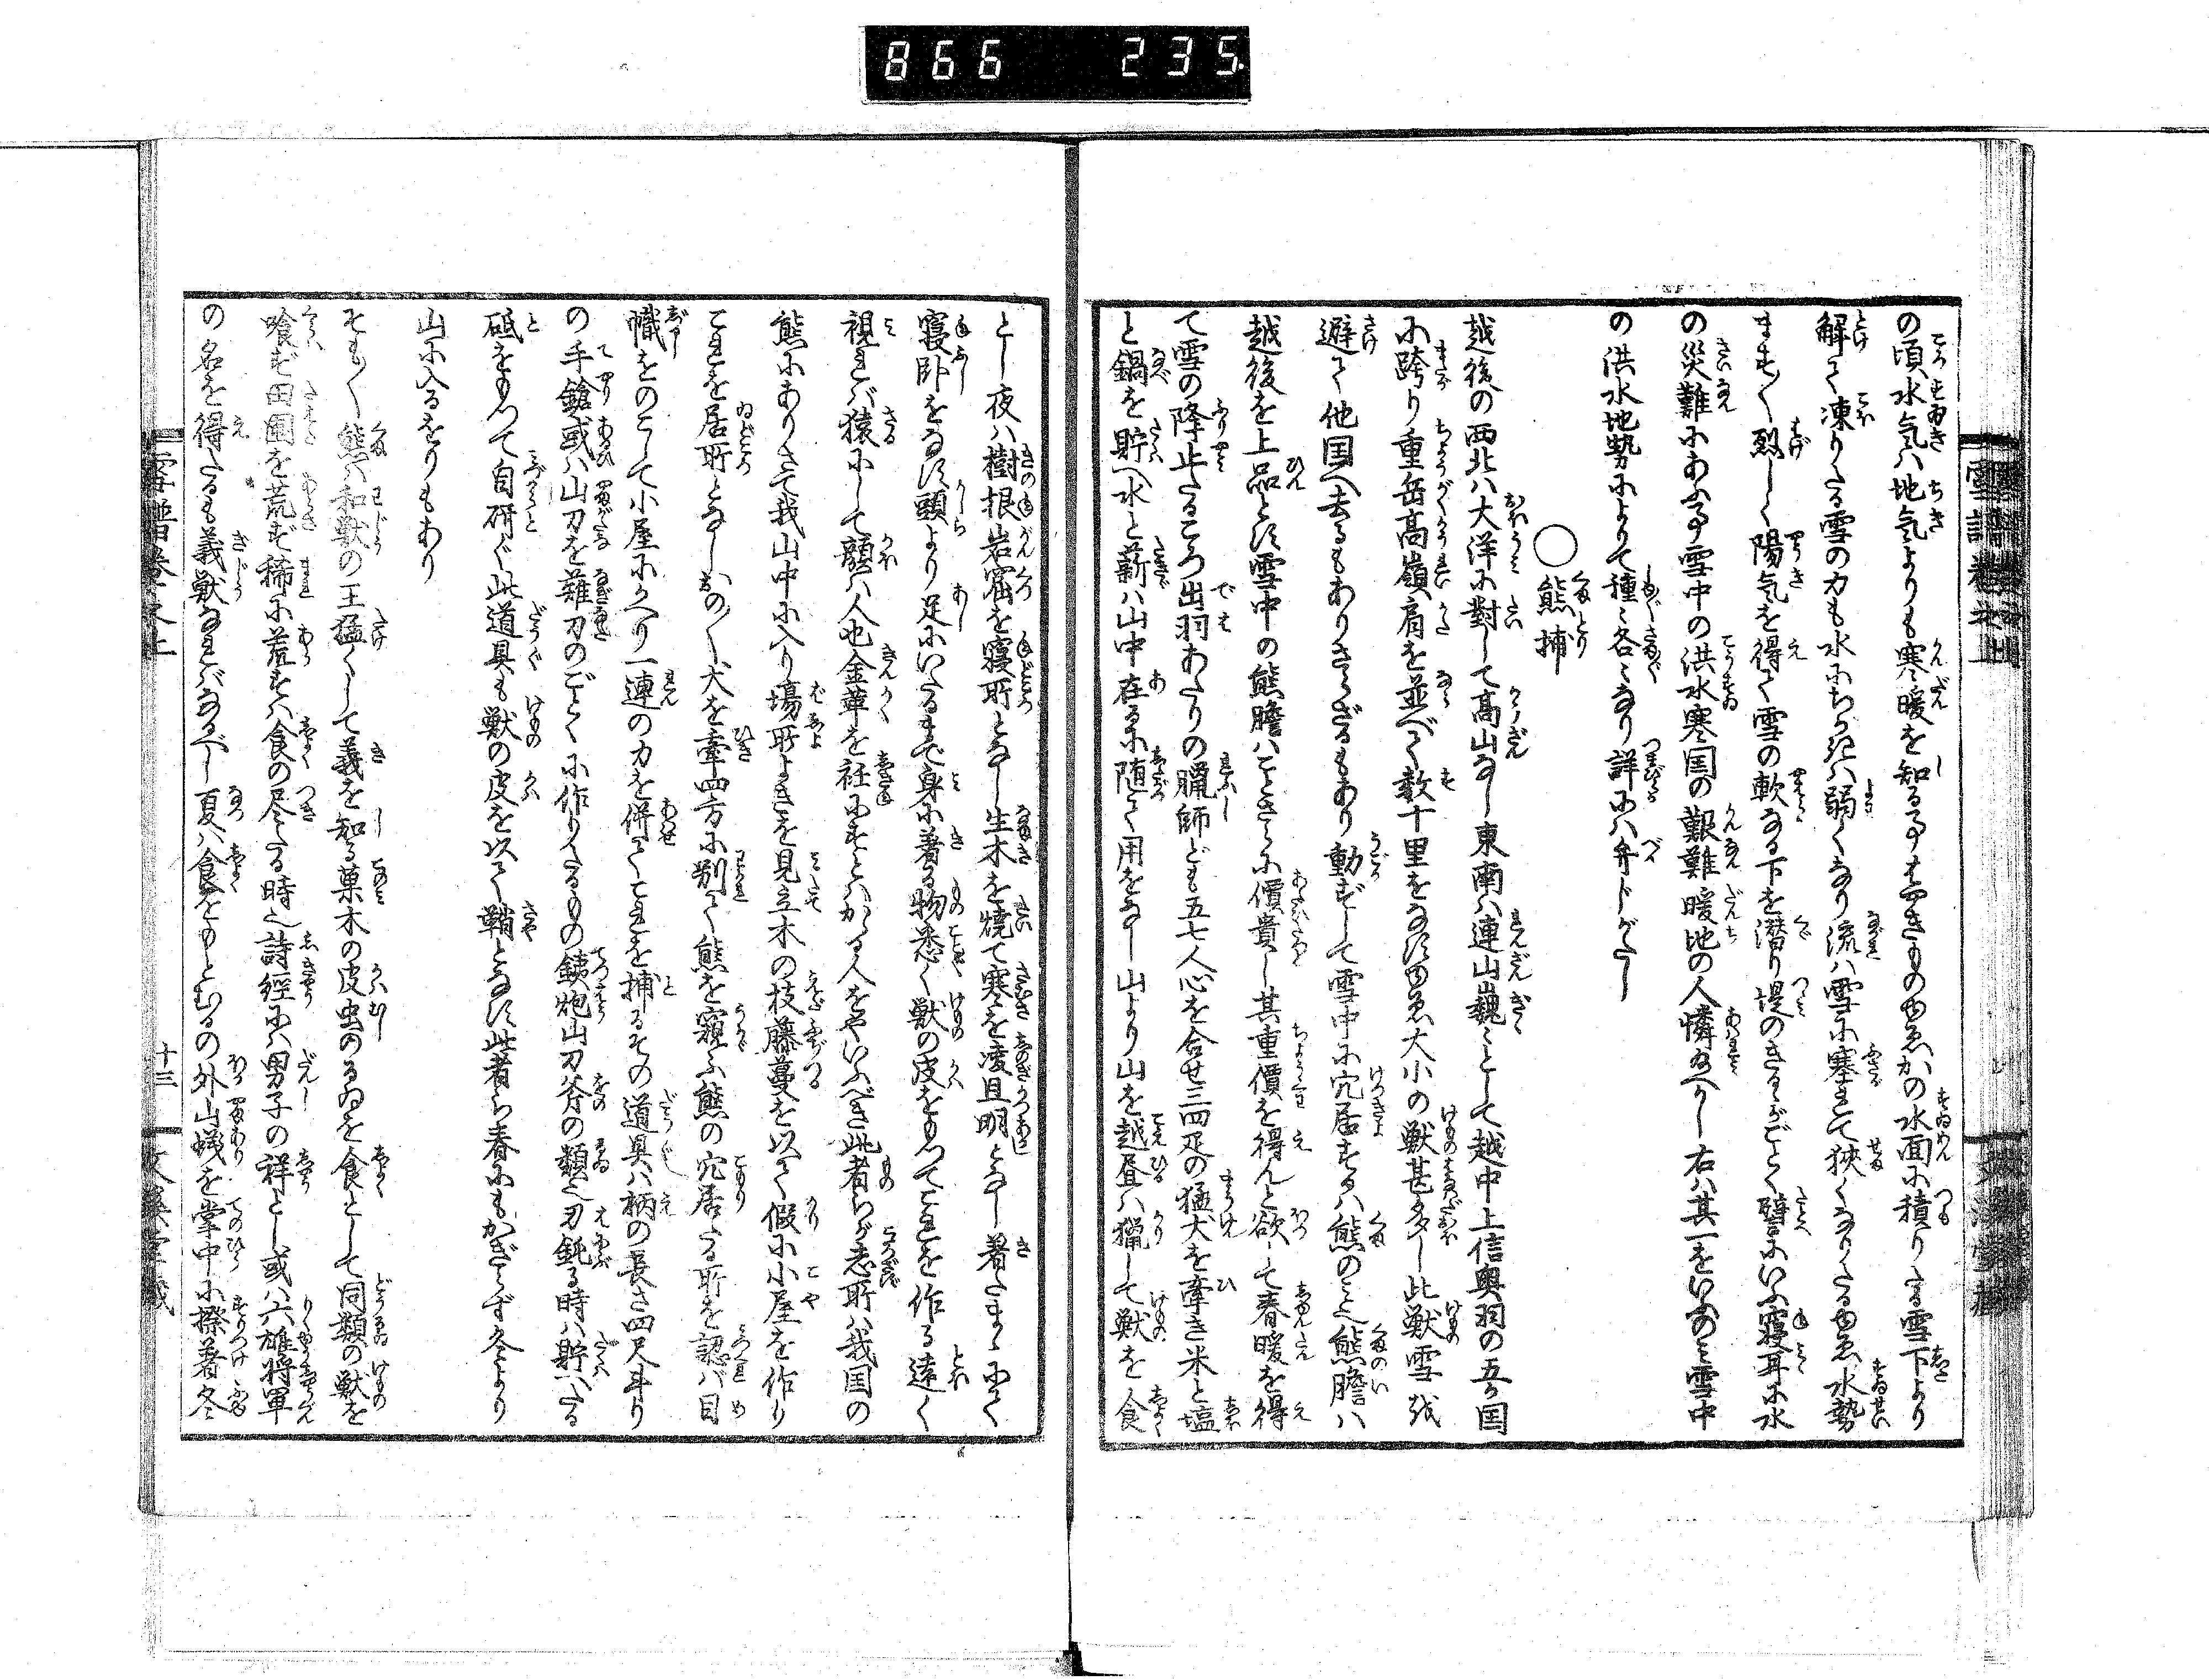 866 235.
の頃水気ハ地気よりも寒暖を知る事はやきものゆゑかの水面に積りたる雪下より
解て凍りたる雪の力も水にちかきハ弱くなり流ハ雪に塞れて狭くなりたるゆゑ水勢
ます〱烈しく陽気を得て雪の軟なる下を潜り堤のきるゝがごとく譬にいふ寝耳に水
の災難にあふ事雪中の洪水寒国の艱難暖地の人憐給へかし右ハ其一をいふのミ雪中
の洪水地勢によりて種ミ各ミなり詳にハ弁じがたし
○熊捕
越後の西北ハ大洋に對して高山なし東南ハ連山巍ミとして越中上信奥羽の五か国
に跨り重岳高嶺肩を並べて数十里をなすゆゑ大小の獣甚多し此獣雪を
避て他国へ去るもありさらざるもあり動ずして雪中に穴居するハ熊のミ也熊膽ハ
越後を上品とす雪中の熊膽ハことさらに價貴し其重價を得んと欲して春暖を得
て雪の降止たるころ出羽あたりの臘師ども五七人心を合せ三四疋の猛犬を牽き米と塩
と鍋を貯へ水と薪ハ山中在るに随て用をなし山より山を越昼ハ猟して獣を食
とし夜ハ樹根岩窟を寝所となし生木を焼て寒を凌且明となし着たまゝにて
寝臥をなす頭より足にいたるまで身に着る物悉く獣の皮をもつてこれを作る遠く
視れバ猿にして顔ハ人也金革を衽にすとハかゝる人をやいふべき此者らが志所ハ我国の
熊にありさて我山中に入り場所よきを見立木の枝藤蔓を以て假に小屋を作り
これを居所となしおの〱犬を牽四方に別て熊を窺ふ熊の穴居たる所を認バ目
幟をのこして小屋にかへり一連の力を併てこれを捕るその道具ハ柄の長さ四尺斗り
の手鎗或ハ山刀を薙刀のごとくに作りたるもの銕炮山刀斧の類也刃鈍る時ハ貯へたる
砥をもつて自研ぐ此道具も獣の皮を以て鞘となす此者ら春にもかぎらず冬より
山に入るをりもあり
そも〱熊ハ和獣の王猛くして義を知る菓木の皮虫のるゐを食として同類の獣を
喰ず田圃を荒ず稀に荒すハ食の尽たる時也詩經にハ男子の祥とし或ハ六雄将軍
の名を得たるも義獣なればバなるべし夏ハ食をもとむるの外山蟻を掌中に擦着冬
雪譜巻之上
十三
文溪堂蔵